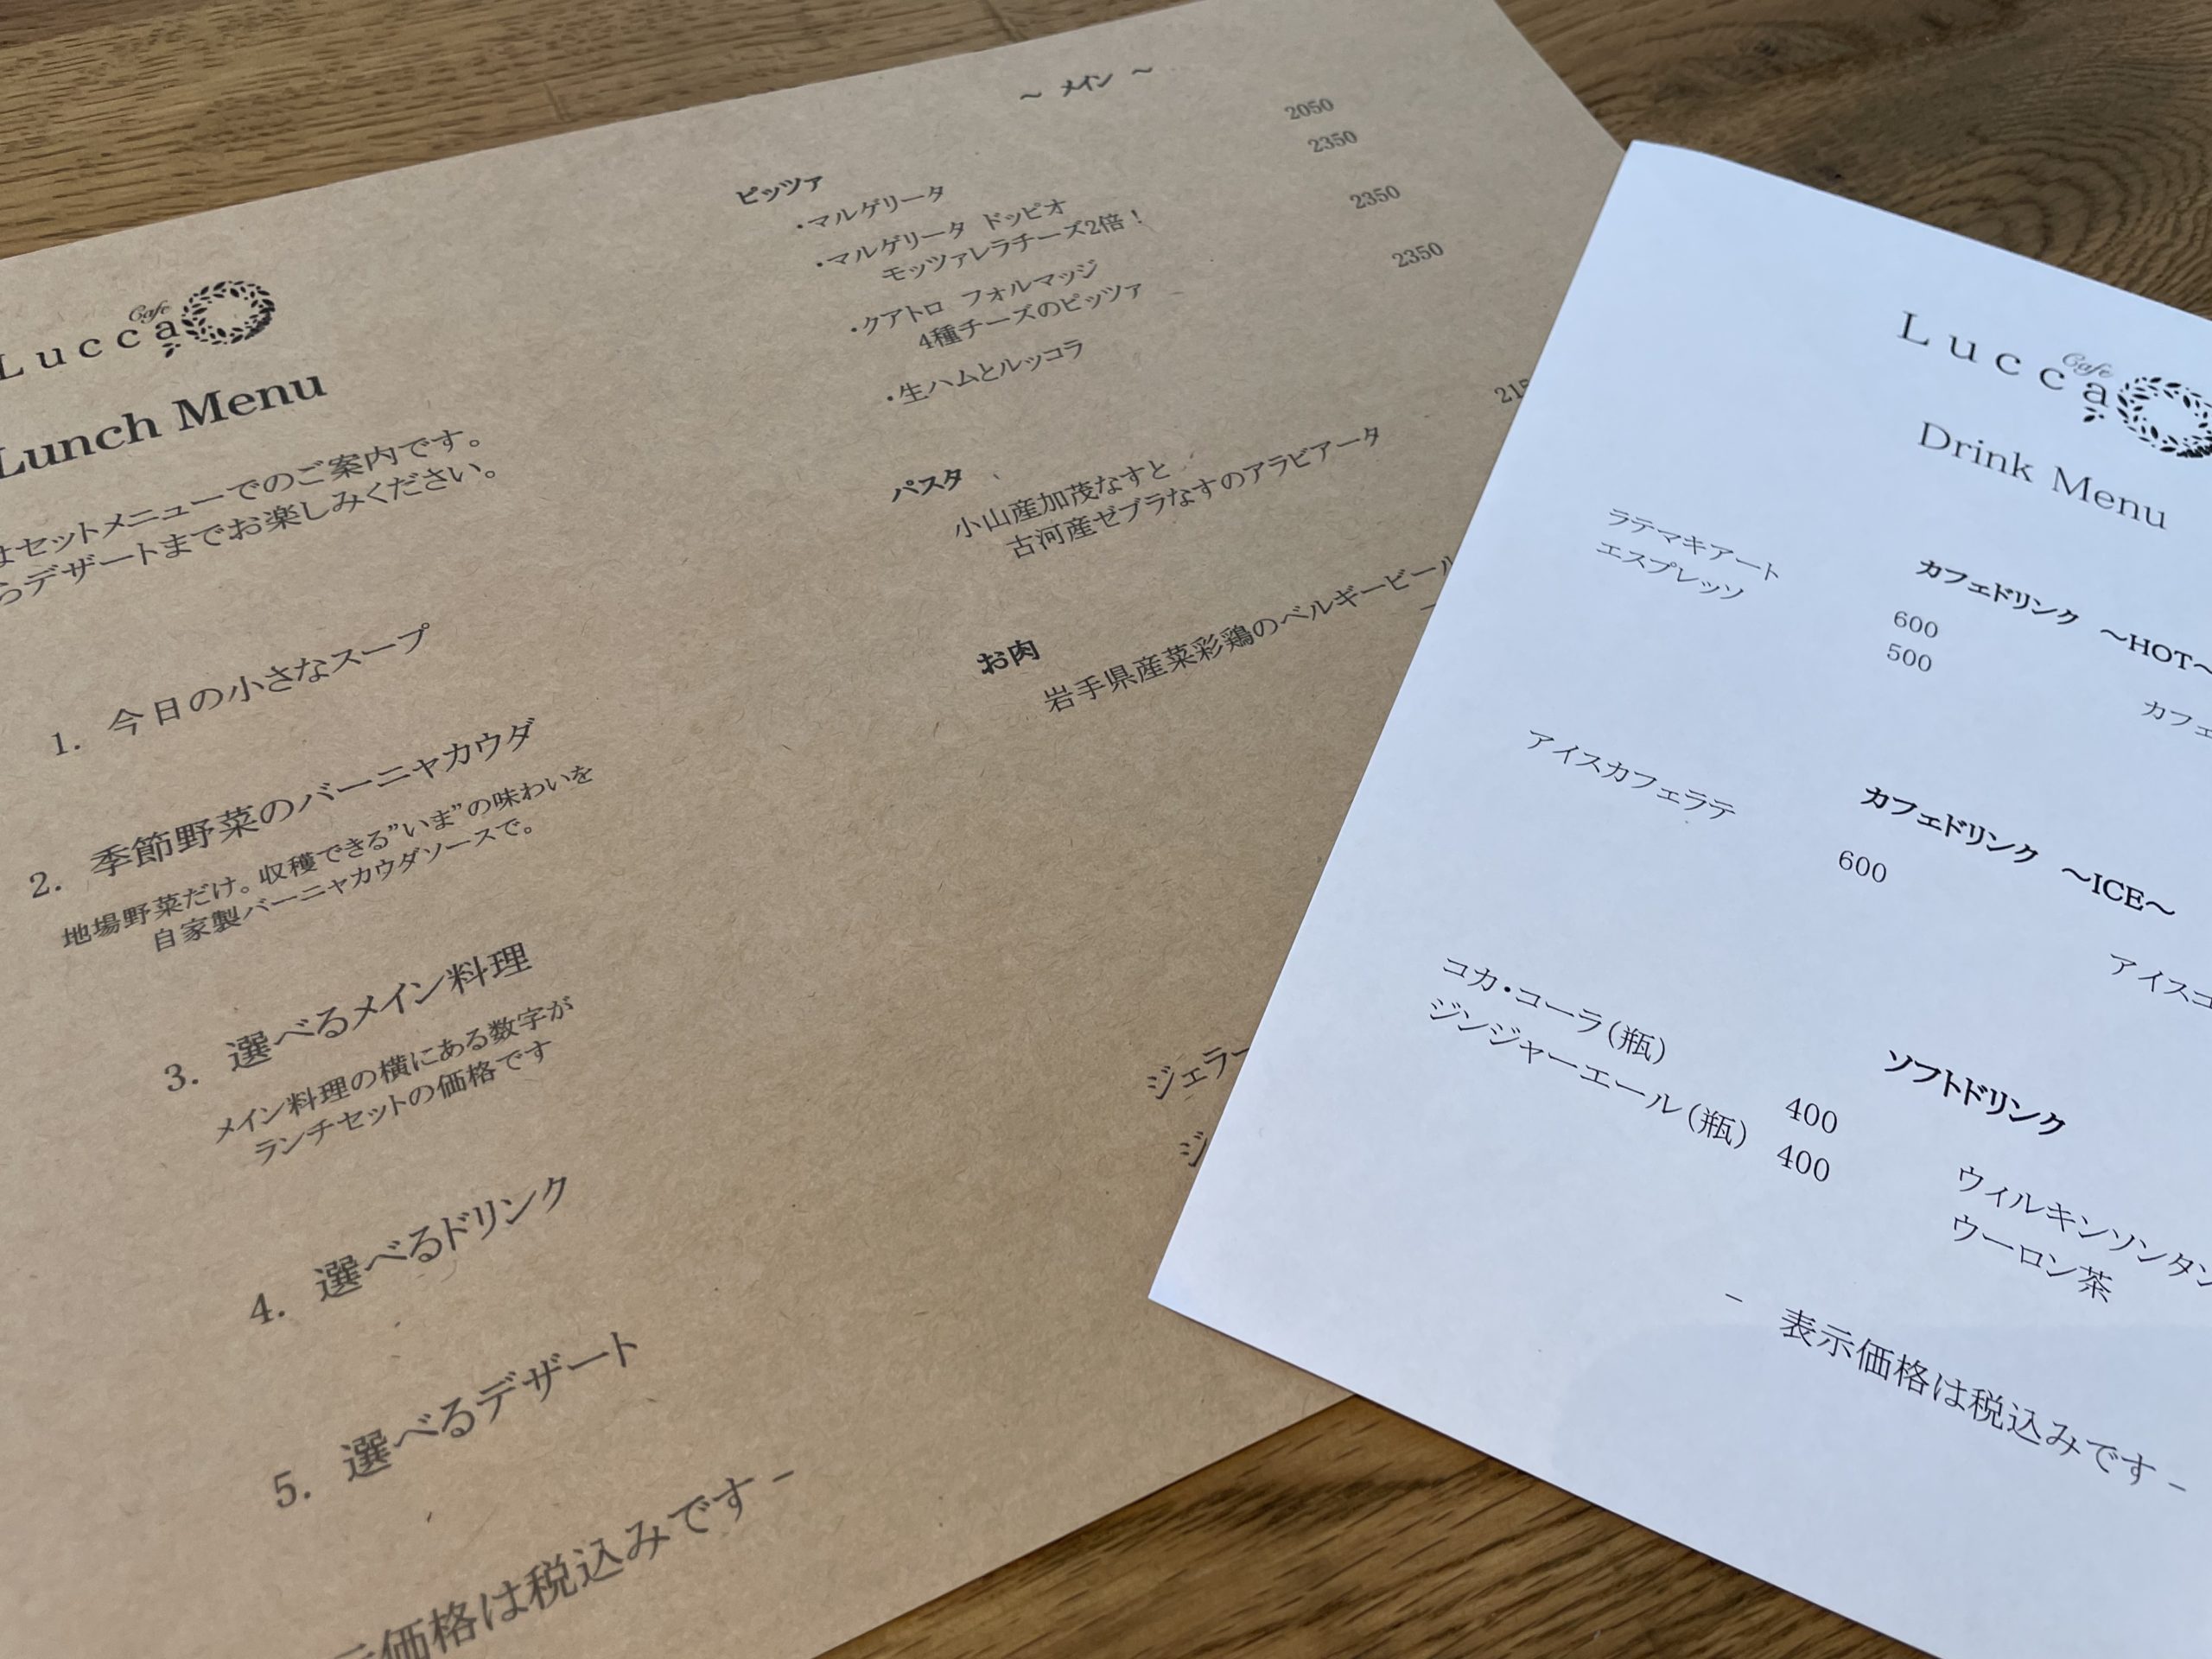 Cafe
Lucca
Lunch Menu
セットメニューでのご案内です。
デザートまでお楽しみください。
1. 今日の小さなスープ
2. 季節野菜のバーニャカウダ
地場野菜だけ。収穫できる”いま”の味わいを
自家製バーニャカウダソースで。
3. 選べるメイン料理
メイン料理の横にある数字が
ランチセットの価格です
4. 選べるドリンク
5. 選べるデザート
価格は税込みです -
～ メイン ～
ピッツァ
・マルゲリータ 2050
・マルゲリータ ドッピオ 2350
モッツァレラチーズ2倍！
・クアトロ フォルマッジ 2350
4種チーズのピッツァ
・生ハムとルッコラ 2350
パスタ
小山産加茂なすと
古河産ゼブラなすのアラビアータ
お肉
岩手県産菜彩鶏のベルギービール
ジェラー
Cafe
Lucca
Drink Menu
カフェドリンク ～HOT～
ラテマキアート 600
エスプレッソ 500
カフェ
カフェドリンク ～ICE～
アイスカフェラテ 600
アイスコ
ソフトドリンク
コカ・コーラ（瓶） 400
ジンジャーエール（瓶） 400
ウィルキンソンタン
ウーロン茶
- 表示価格は税込みです -